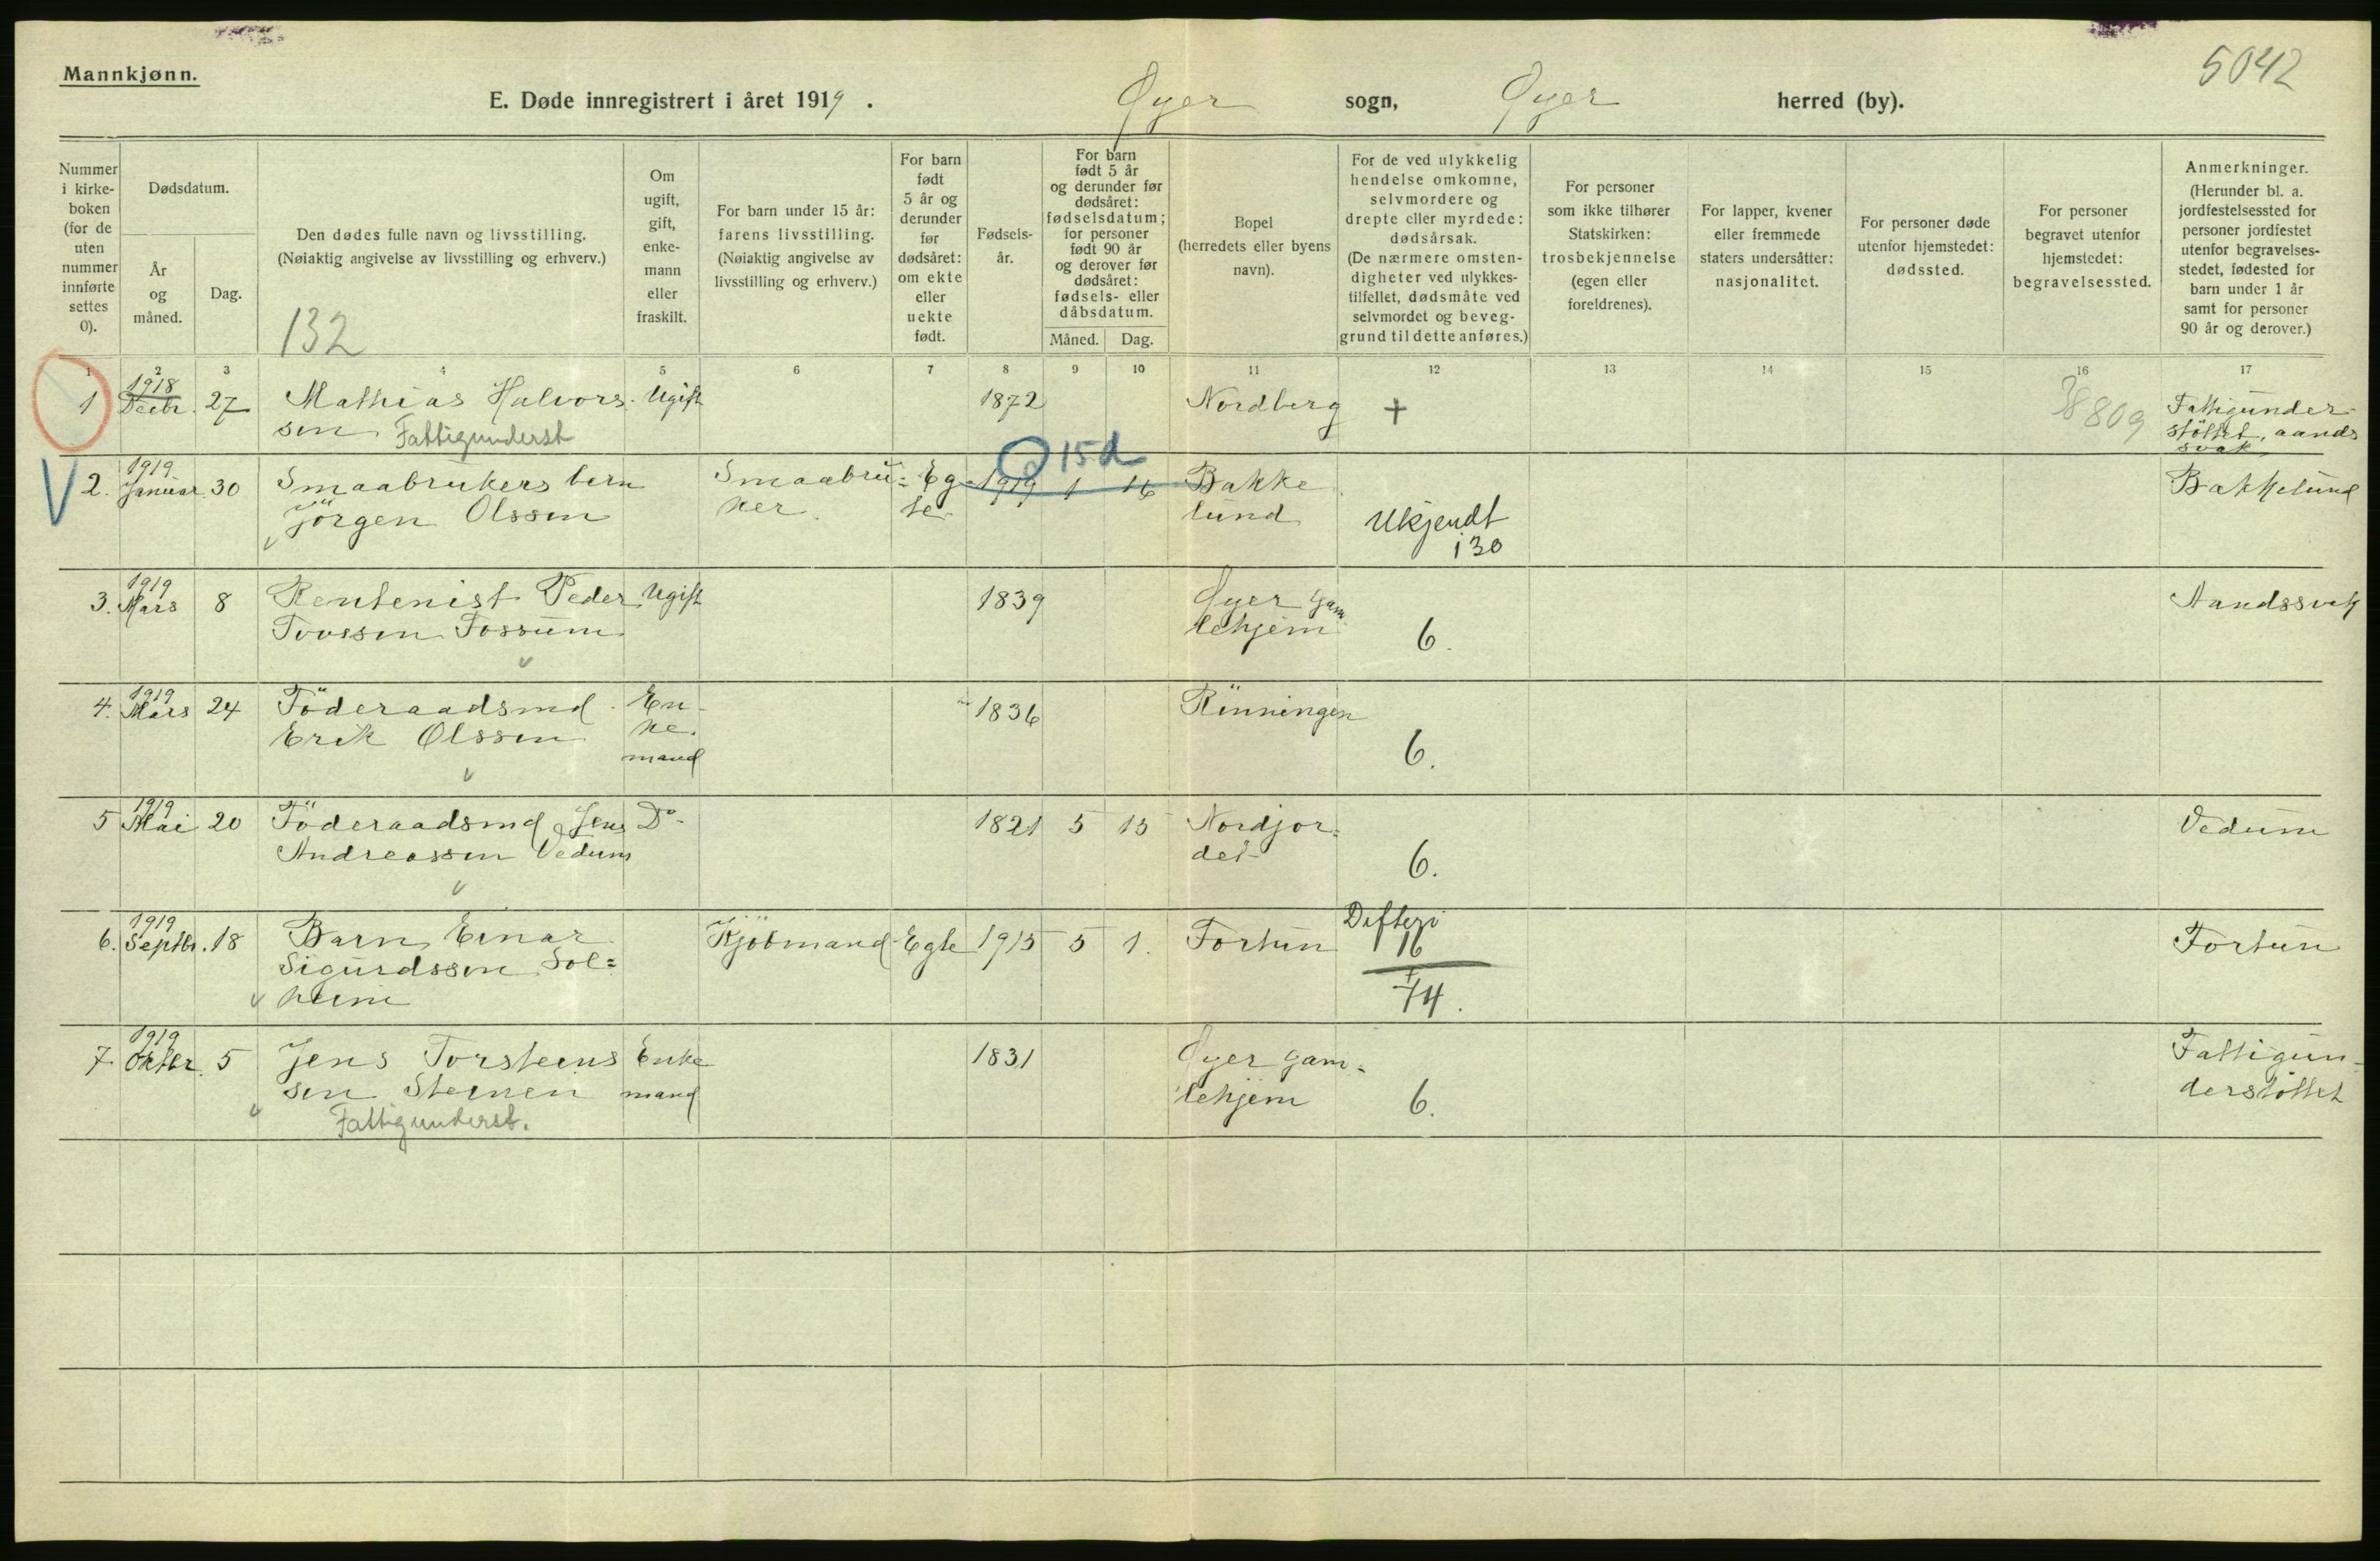 5042
Mannkjønn.
E. Døde innregistrert i året 1919. Øyer sogn, Øyer herred (by).
Nummer i kirke- boken (for de uten nummer innførte settes 0).
Dødsdatum.
År og måned.
Dag.
Den dødes fulle navn og livsstilling.
(Nøiaktig angivelse av livsstilling og erhverv.)
132
Om ugift, gift, enke- mann eller fraskilt.
For barn under 15 år: farens livsstilling. (Nøiaktig angivelse av livsstilling og erhverv.)
For barn født 5 år og derunder før dødsåret: om ekte eller uekte født.
Fødsels- år.
For barn født 5 år og derunder før dødsåret: fødselsdatum; for personer født 90 år og derover før dødsåret: fødsels- eller dåbsdatum.
Måned. Dag.
Bopel (herredets eller byens navn).
For de ved ulykkelig hendelse omkomne, selvmordere og drepte eller myrdede: dødsårsak. (De nærmere omsten- digheter ved ulykkes- tilfellet, dødsmåte ved selvmordet og beveg- grund til dette anføres.)
For personer som ikke tilhører Statskirken: trosbekjennelse (egen eller foreldrenes).
For lapper, kvener eller fremmede staters undersåtter: nasjonalitet.
For personer døde utenfor hjemstedet: dødssted.
For personer begravet utenfor hjemstedet: begravelsessted.
Anmerkninger. (Herunder bl. a. jordfestelsessted for personer jordfestet utenfor begravelses- stedet, fødested for barn under 1 år samt for personer 90 år og derover.)
1 2 3 4 5 6 7 8 9 10 11 12 13 14 15 16 17
1 1918 Decbr. 27 Mathias Halvors- Ugift 1872 Nordberg + 38809 Fattigunder-
sen Fattigunderst støttet, aands
svak
15 d
2. 1919 Januar 30 Smaabrukers barn Smaabru= Eg- 1919 1 16 Bakke Bakkelund
Jörgen Olssen ker te lund Ukjendt
130
3. 1919 Mars 8 Rentenist Peder Ugift 1839 Øyer Gam Aandssvak
Tovssen Fossum lehjem 6.
4. 1919 Mars 24 Föderaadsmd. En- 1836 Rünningen
Erik Olssen ke-
mand 6.
5 1919 Mai 20 Föderaadsmd Jens Do 1821 5 15 Nordjor= Vedum
Andreassen Vedum det 6.
6. 1919 Septbr. 18 Barn Einar Kjöbmand Egte 1915 5 1. Fortun Difteri Fortun
Sigurdssen Sol= 16
heim 74.
7. 1919 Oktbr. 5 Jens Torsteins Enke 1831 Øyer gam= Fattigun-
sen Steinen mand lehjem 6. derstöttet
Fattigunderst.